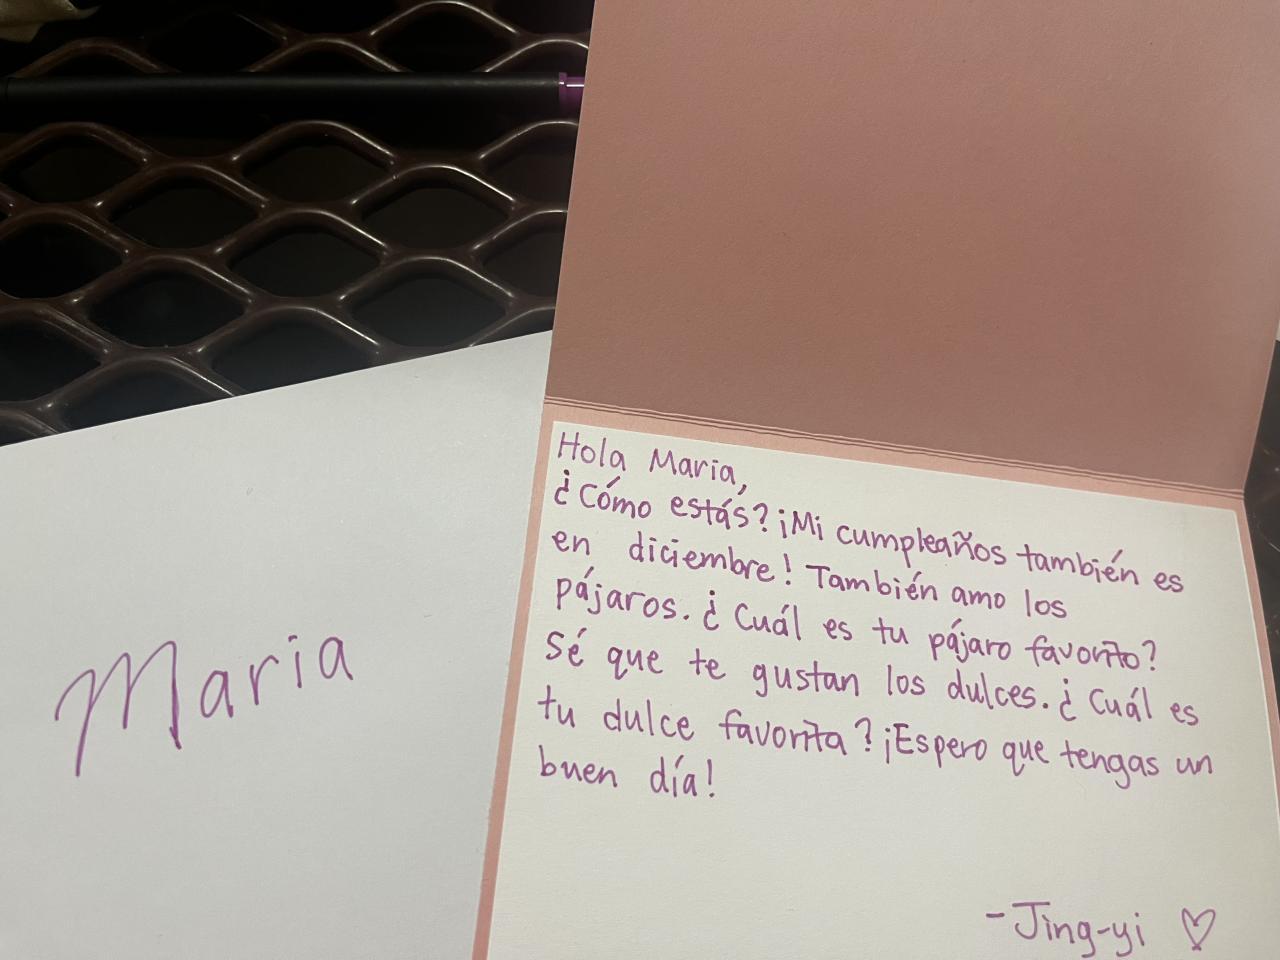 Maria
Hola Maria,
¿Cómo estás? ¡Mi cumpleaños también es
en diciembre! También amo los
pájaros. ¿Cuál es tu pájaro favorito?
Sé que te gustan los dulces. ¿Cuál es
tu dulce favorita? ¡Espero que tengas un
buen día!
-Jing-yi ♡